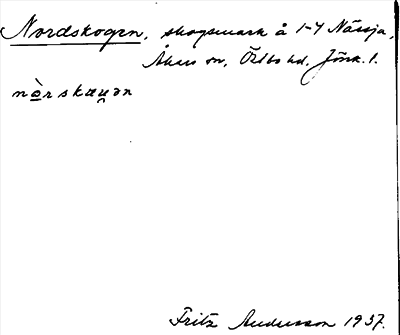 Nordskogen, skogsmark å 1-4 Nässja,
Åkers sn, Östbo hd, Jönk. l.
nòrskɑu̯ən
Fritz Andersson 1937.